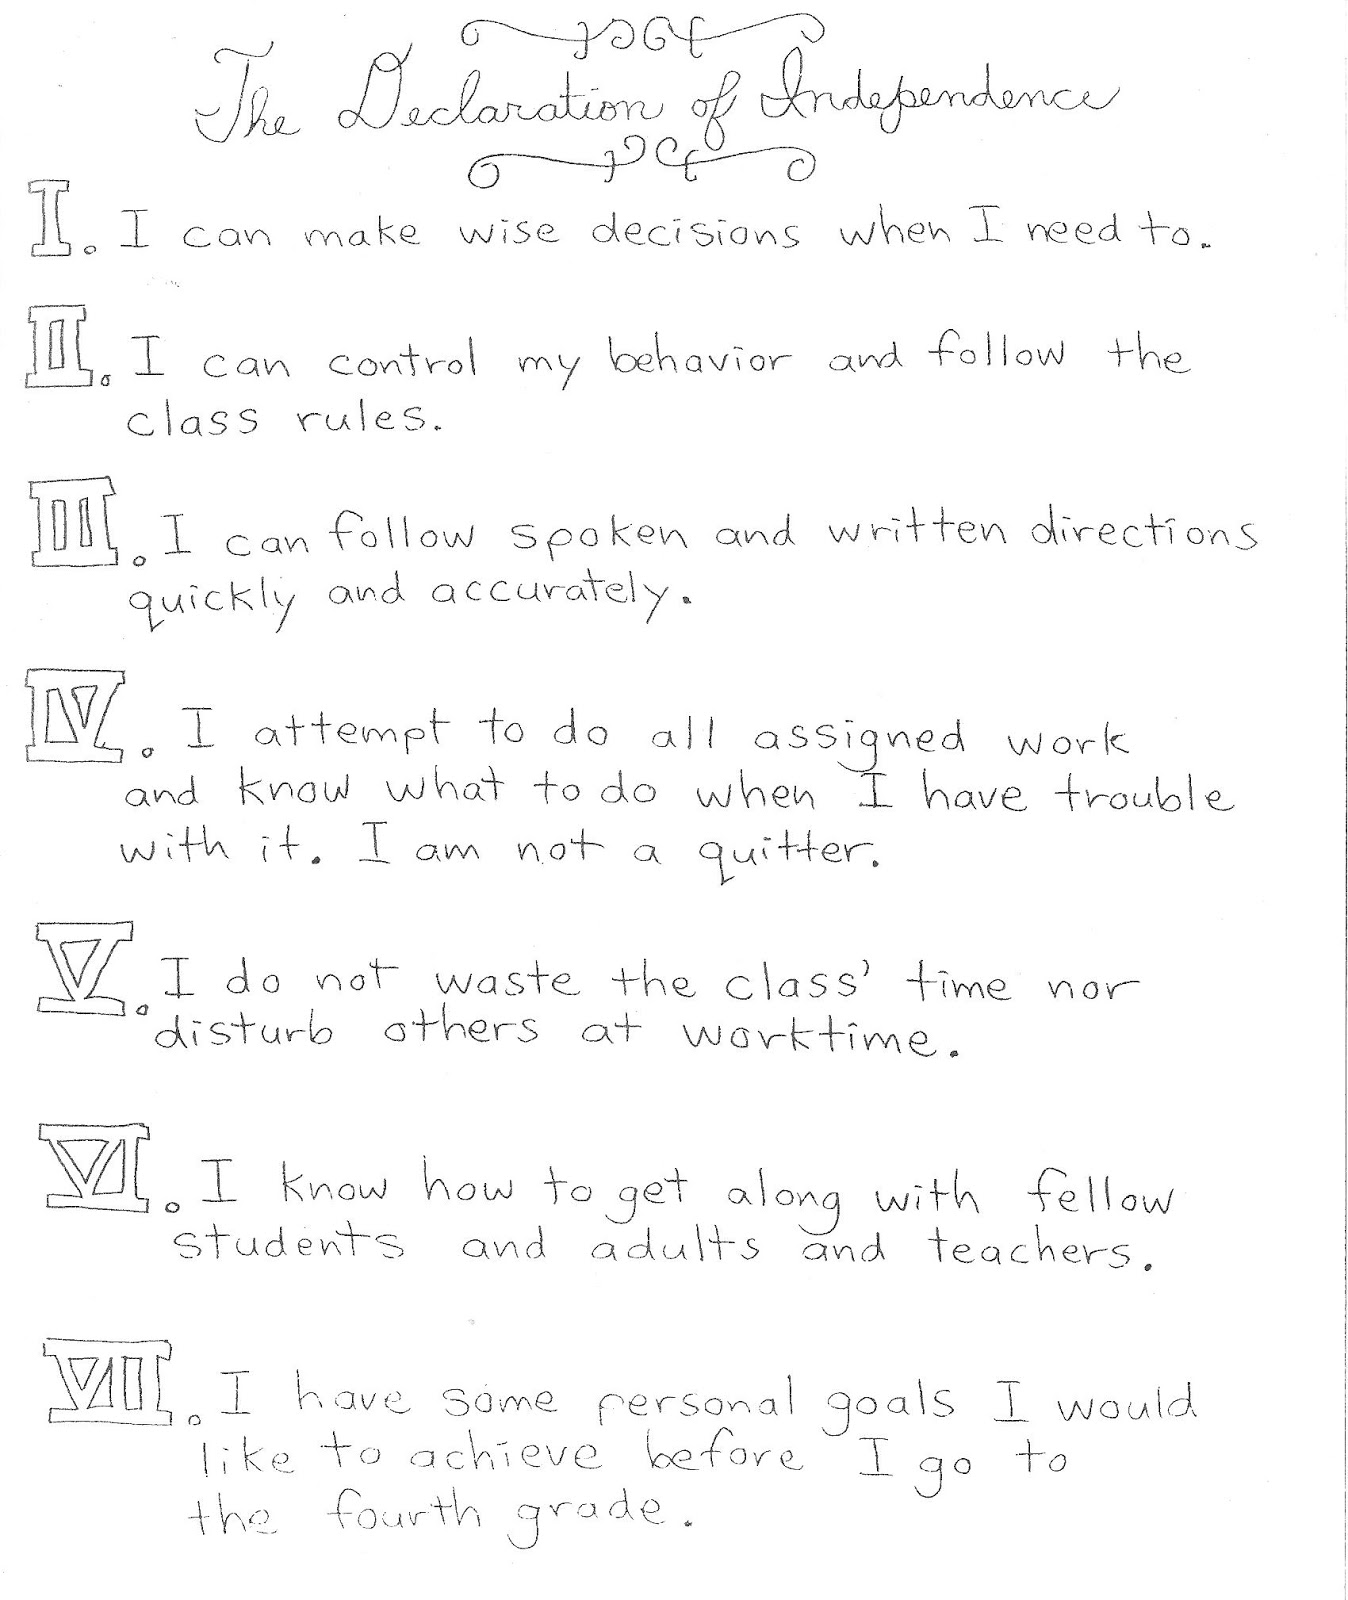 The Declaration of Independence
I. I can make wise decisions when I need to.
II. I can control my behavior and follow the
class rules.
III. I can follow spoken and written directions
quickly and accurately.
IV. I attempt to do all assigned work
and know what to do when I have trouble
with it. I am not a quitter.
V. I do not waste the class' time nor
disturb others at worktime.
VI. I know how to get along with fellow
students and adults and teachers.
VII. I have some personal goals I would
like to achieve before I go to
the fourth grade.